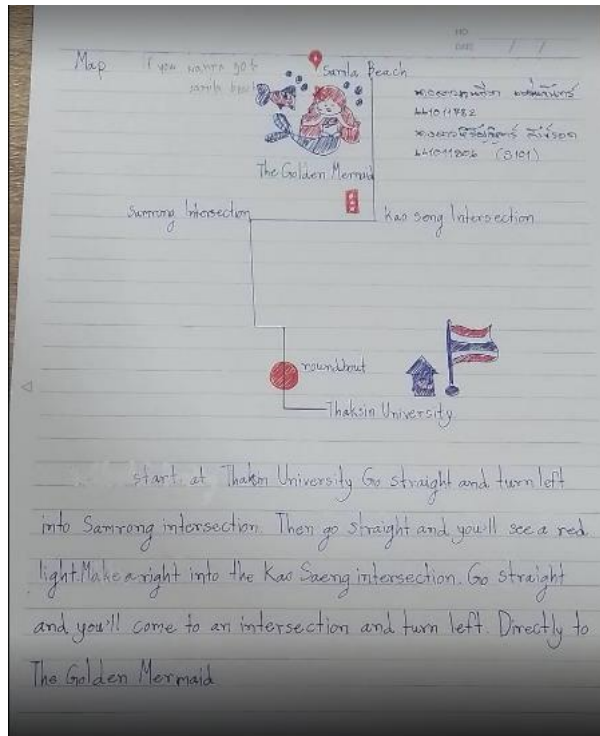 NO
DATE / /
Map If you wanna go to
samila beach
Samila Beach
441011782
441011806 (S101)
The Golden Mermaid
Samrong Intersection
Kao seng Intersection
roundbout
Thaksin University
start at Thaksin University Go straight and turn left
into Samrong intersection. Then go straight and you'll see a red
light. Make a right into the Kao Saeng intersection. Go straight
and you'll come to an intersection and turn left. Directly to
The Golden Mermaid